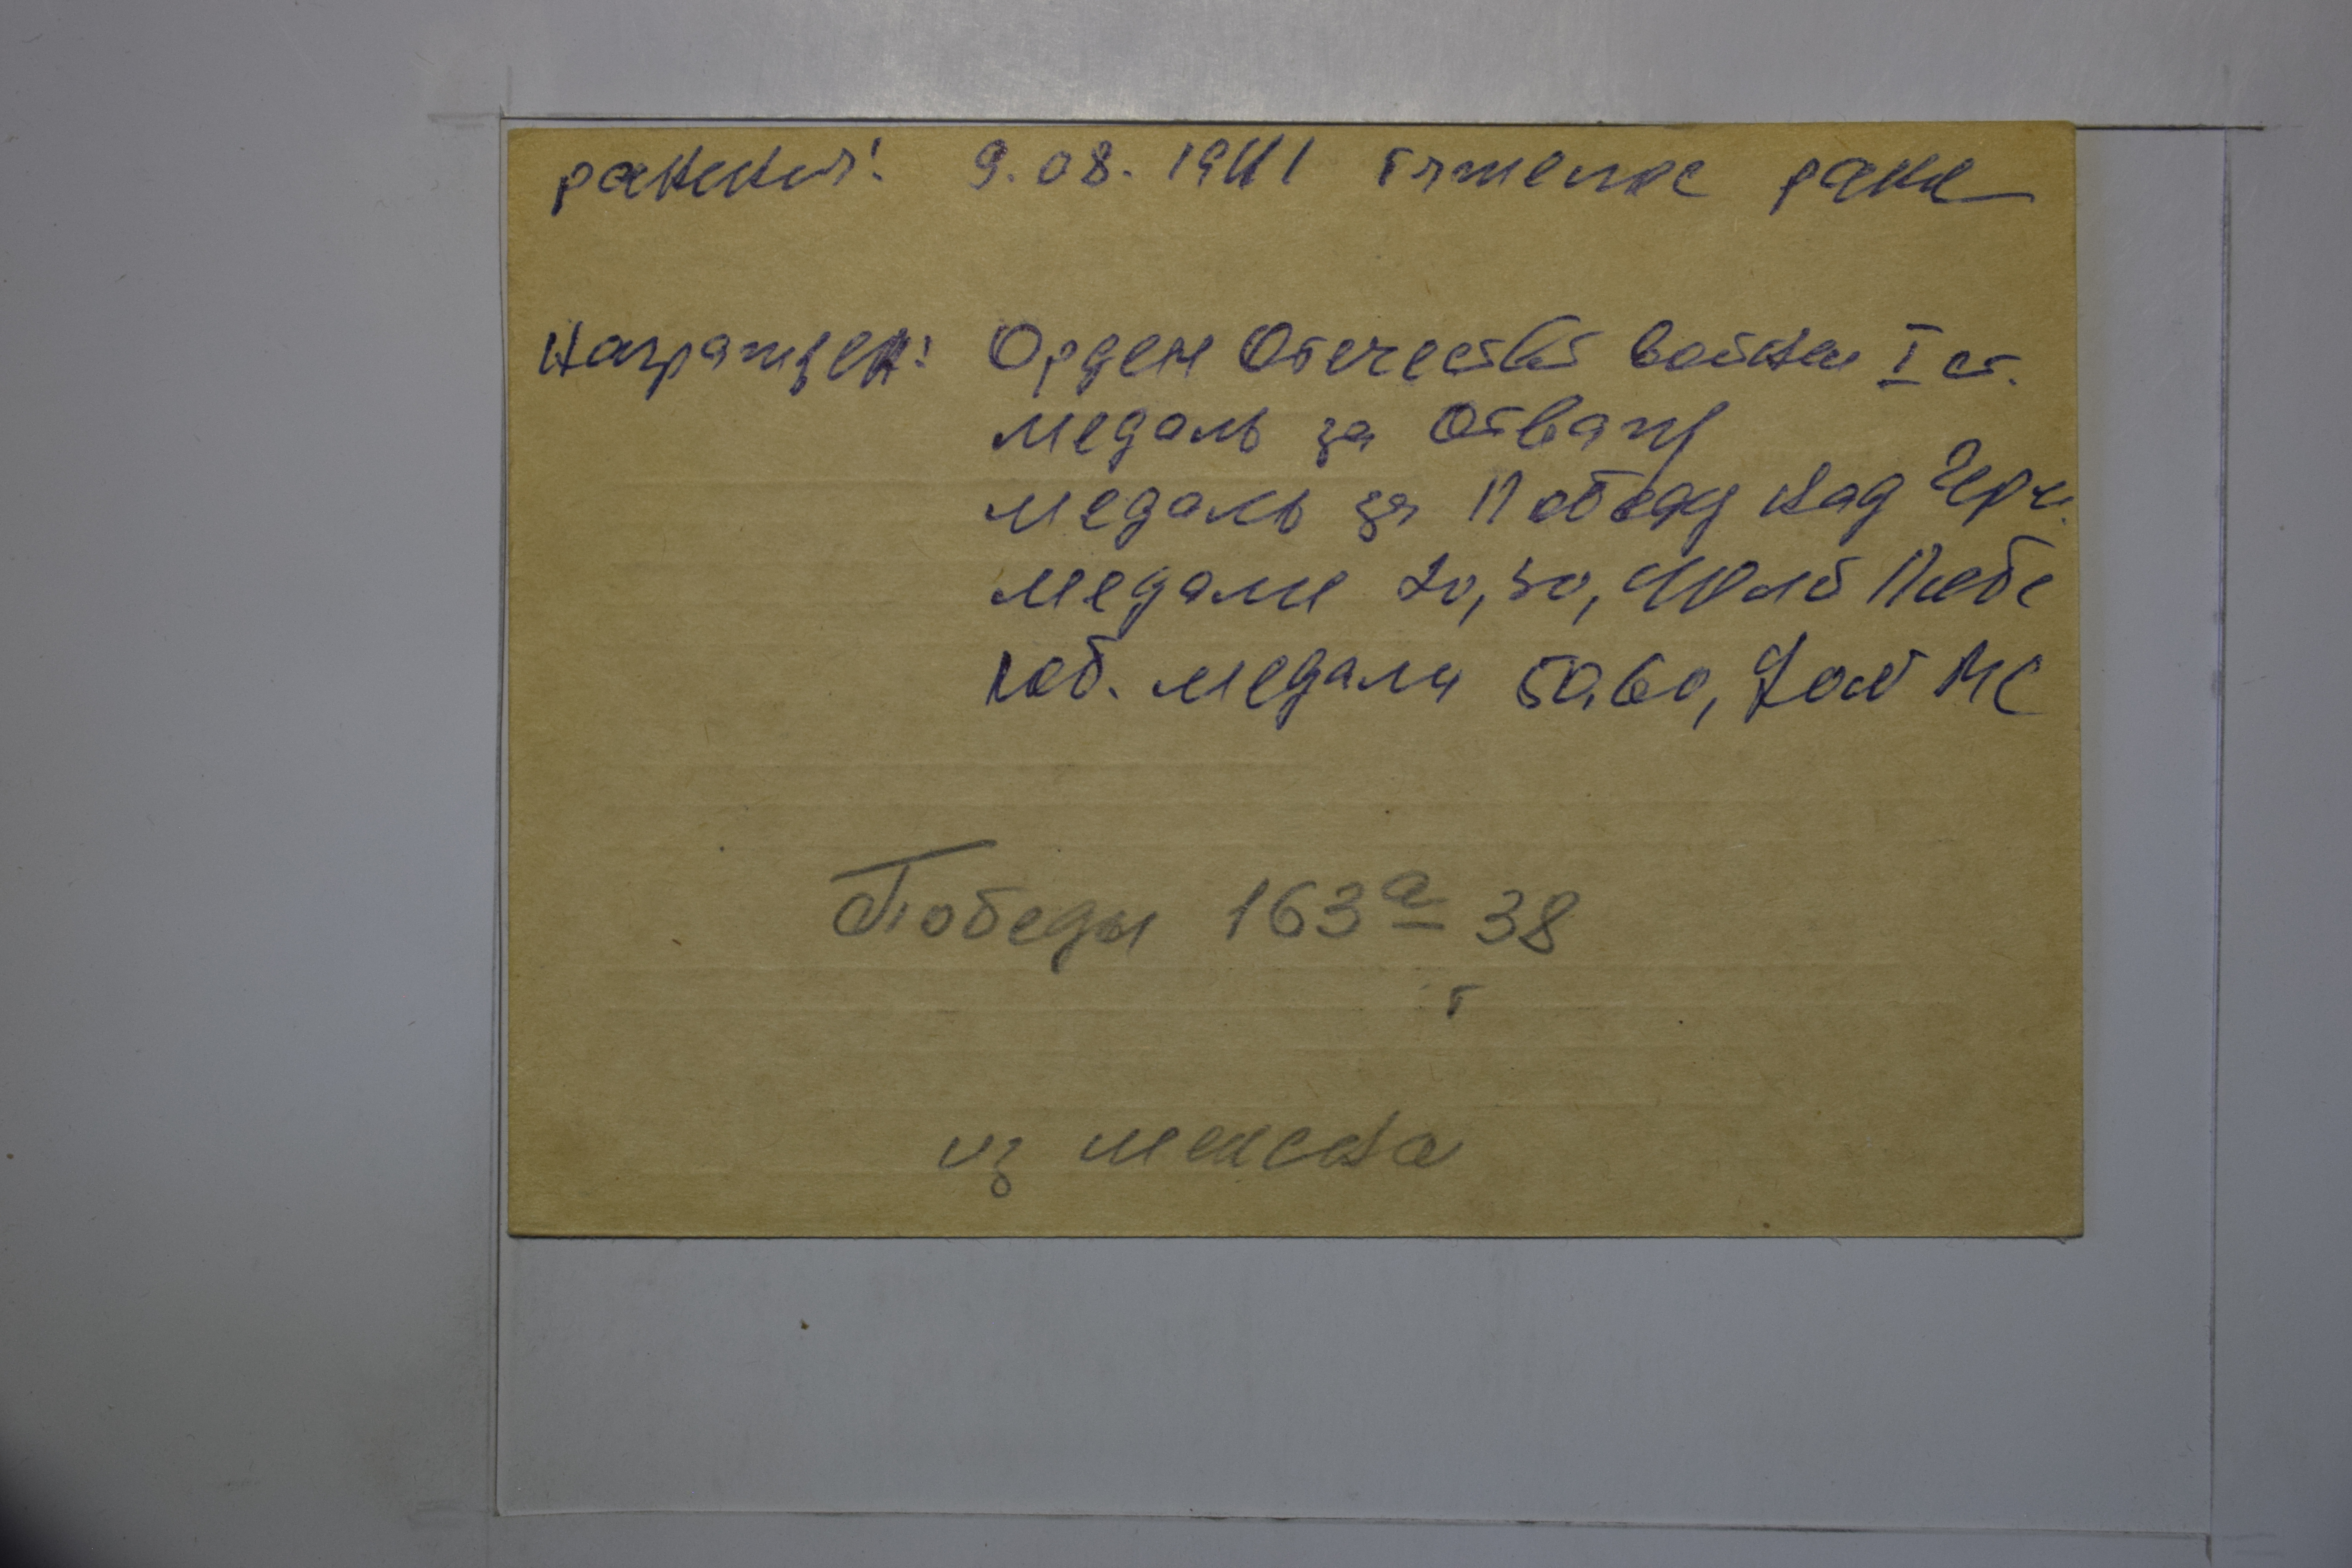 ранения: 9.08.1941 тяжелое ране
Награжден: Орден Отечеств войны I ст.
медаль за Отвагу
медаль за Победу над Герм.
медали 20, 30, 40 лет Побе
юб. медали 50, 60, 70 лет ВС
Победы 163а 38
т
из Минска